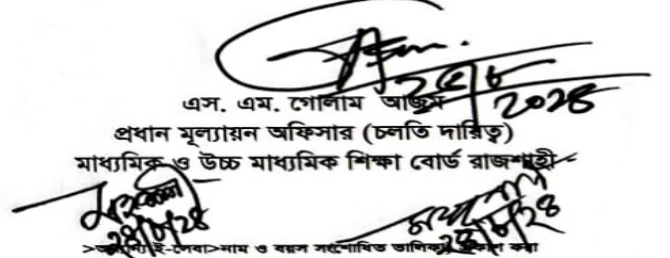 ২৫/৮
২০২৪
এস. এম. গোলাম আজম
প্রধান মূল্যায়ন অফিসার (চলতি দায়িত্ব)
মাধ্যমিক ও উচ্চ মাধ্যমিক শিক্ষা বোর্ড রাজশাহী
২৪/৮/২৪
২৪/৮/২৪
ই-সেবা>নাম ও বয়স সংশোধিত তালিকা প্রকাশ করা